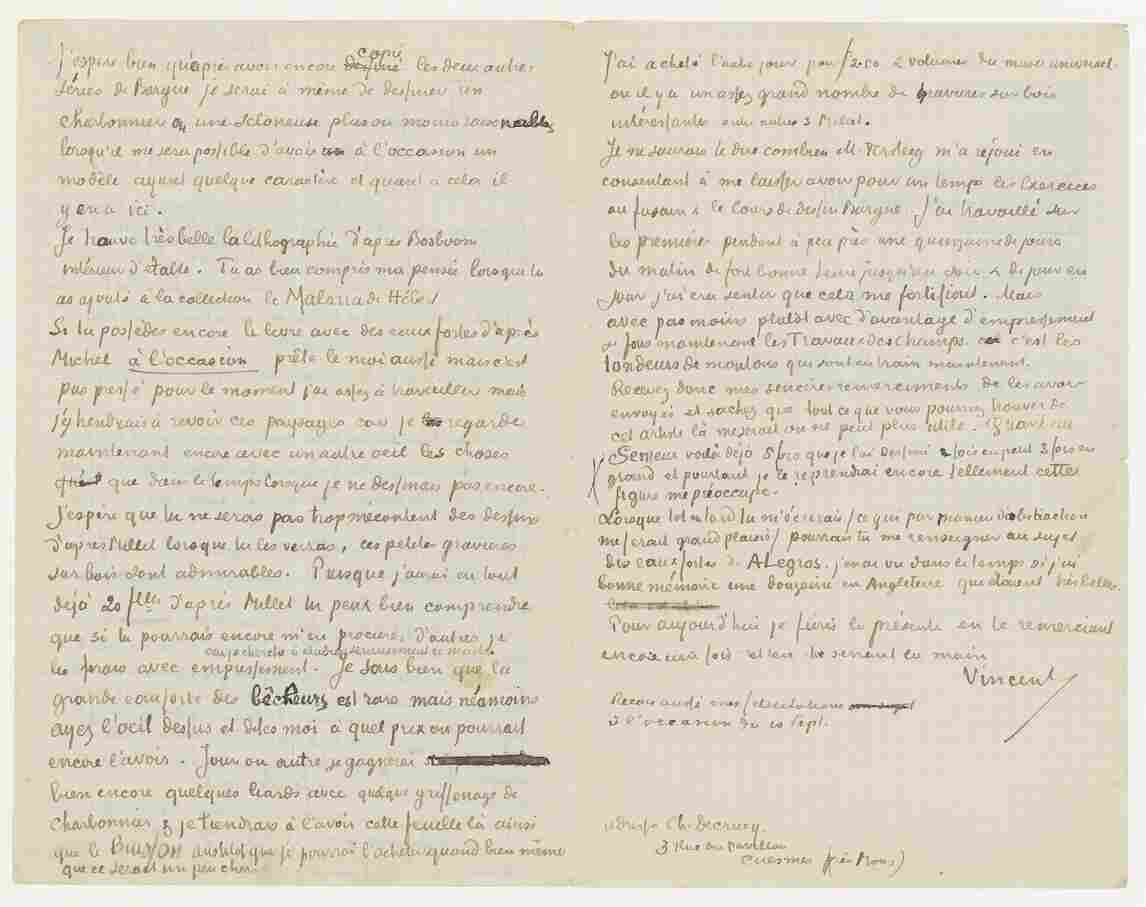 J'espère bien qu'après avoir encore dessiné copié les deux autres
séries de Bargue je serai à même de dessiner un
charbonnier ou une scloneuse plus ou moins raisonnables
lorsqu'il me sera possible d'avoir à l'occasion un
modèle ayant quelque caractère et quant à cela il
y en a ici.
Je trouve très belle la lithographie d'après Bosboom
intérieur d'étable. Tu as bien compris ma pensée lorsque tu
as ajouté à la collection le Malaria de Hébert
Si tu possèdes encore le livre avec des eaux fortes d'après
Michel à l'occasion prête le moi aussi mais c'est
pas pressé pour le moment j'ai assez à travailler mais
j'y tiendrais à revoir ces paysages car je regarde
maintenant encore avec un autre oeil les choses
que dans le temps lorsque je ne dessinais pas encore.
J'espère que tu ne seras pas trop mécontent des dessins
d'après Millet lorsque tu les verras, ces petites gravures
sur bois sont admirables. Puisque j'aurai en tout
déjà 20 flles d'après Millet tu peux bien comprendre
que si tu pourrais encore m'en procurer d'autres je
car je cherche à étudier sérieusement ce maître.
les ferais avec empressement. Je sais bien que la
grande eau forte des bêcheurs est rare mais néamoins
ayez l'oeil dessus et dites moi à quel prix on pourrait
encore l'avoir. Jour ou autre je gagnerai
bien encore quelques liards avec quelque griffonage de
charbonnier & je tiendrais à l'avoir cette feuille là ainsi
que le BUISSON aussitôt que je pourrai l'acheter quand bien même
que ce serait un peu cher.
J'ai acheté l'autre jour pour f2.50 2 volumes du musée universel
où il y a un assez grand nombre de gravures sur bois
intéressantes entre autres 3 Millet.
Je ne saurais te dire combien M. Tersteeg m'a réjoui en
consentant à me laisser avoir pour un temps les Exercices
au fusain & le Cours de dessin Bargue. J'ai travaillé sur
les premiers pendant à peu près une quinzaine de jours
du matin de fort bonne heure jusqu'au soir & de jour en
jour j'ai cru sentir que cela me fortifiait. Mais
avec pas moins plutôt avec d'avantage d'empressement
je fais maintenant les Travaux des champs. c'est les
tondeurs de moutons qui sont en train maintenant.
Recevez donc mes sincères remerciments de les avoir
envoyés et sachez que tout ce que vous pourrez trouver de
cet artiste là me serait on ne peut plus utile. Quant au
Semeur voilà déjà 5 fois que je l'ai dessiné 2 fois en petit 3 fois en
grand et pourtant je le reprendrai encore tellement cette
figure me préoccupe.
Lorsque tôt ou tard tu m'écrirais (ce qui par manière d'abstraction
me ferait grand plaisir) pourrais tu me renseigner au sujet
des eaux fortes de A Legros. j'en ai vu dans le temps si j'ai
bonne mémoire une douzaine en Angleterre qui étaient très belles.
Pour aujourd'hui je finis la présente en te remerciant
encore une fois et en te serrant la main
Vincent
à l'occasion du 10 Sept.
adresse Ch. Decrucq.
3 Rue du Pavillon
Cuesmes (près Mons)